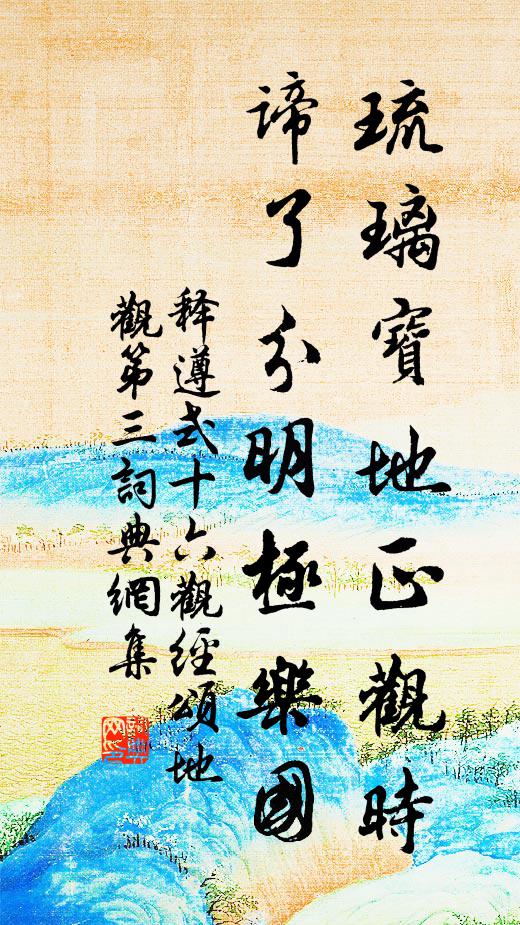 琉璃寶地正觀時
諦了分明極樂國
释遵式十六觀經頌地
觀第三詞典網集